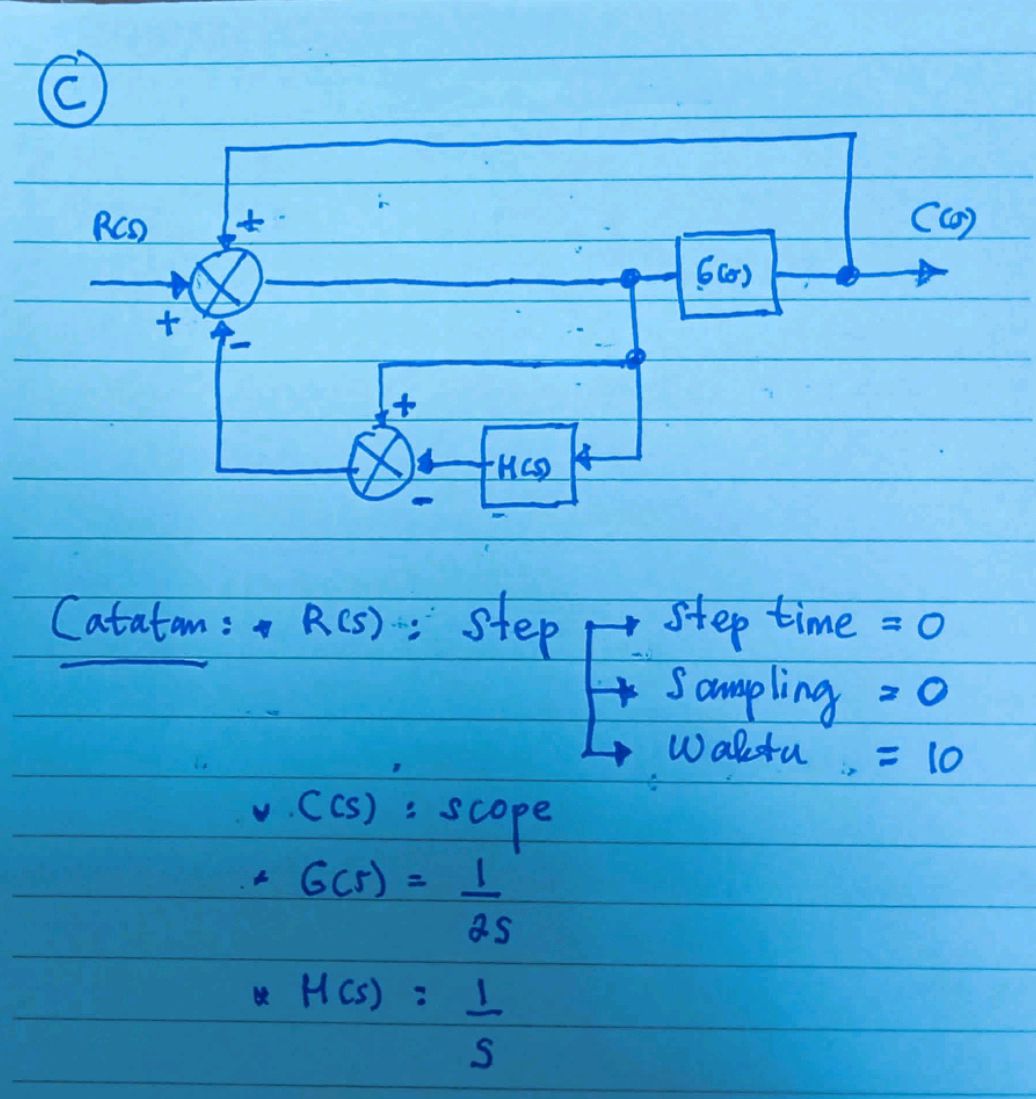 C
+
R(s) C(s)
G(s)
+ -
+
H(s)
-
Catatan: * R(s) : Step → Step time = 0
→ Sampling = 0
→ Waktu = 10
* C(s) : scope
* G(s) = 1
2s
* H(s) : 1
s